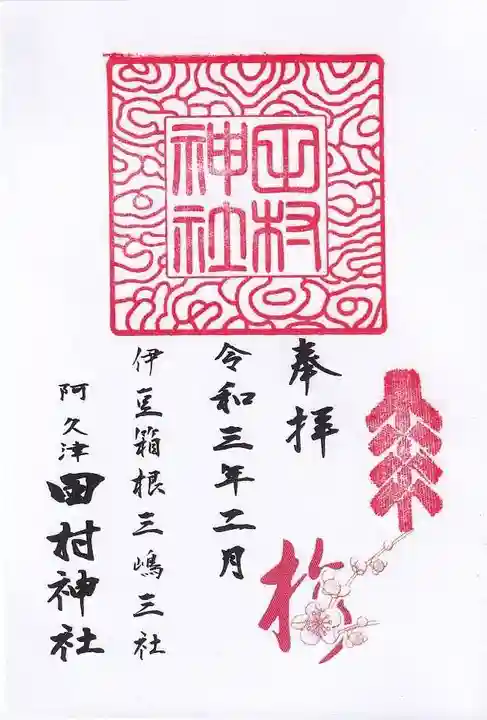 田村
神社
奉拝
令和三年二月
伊豆箱根三嶋三社
阿久津田村神社
梅